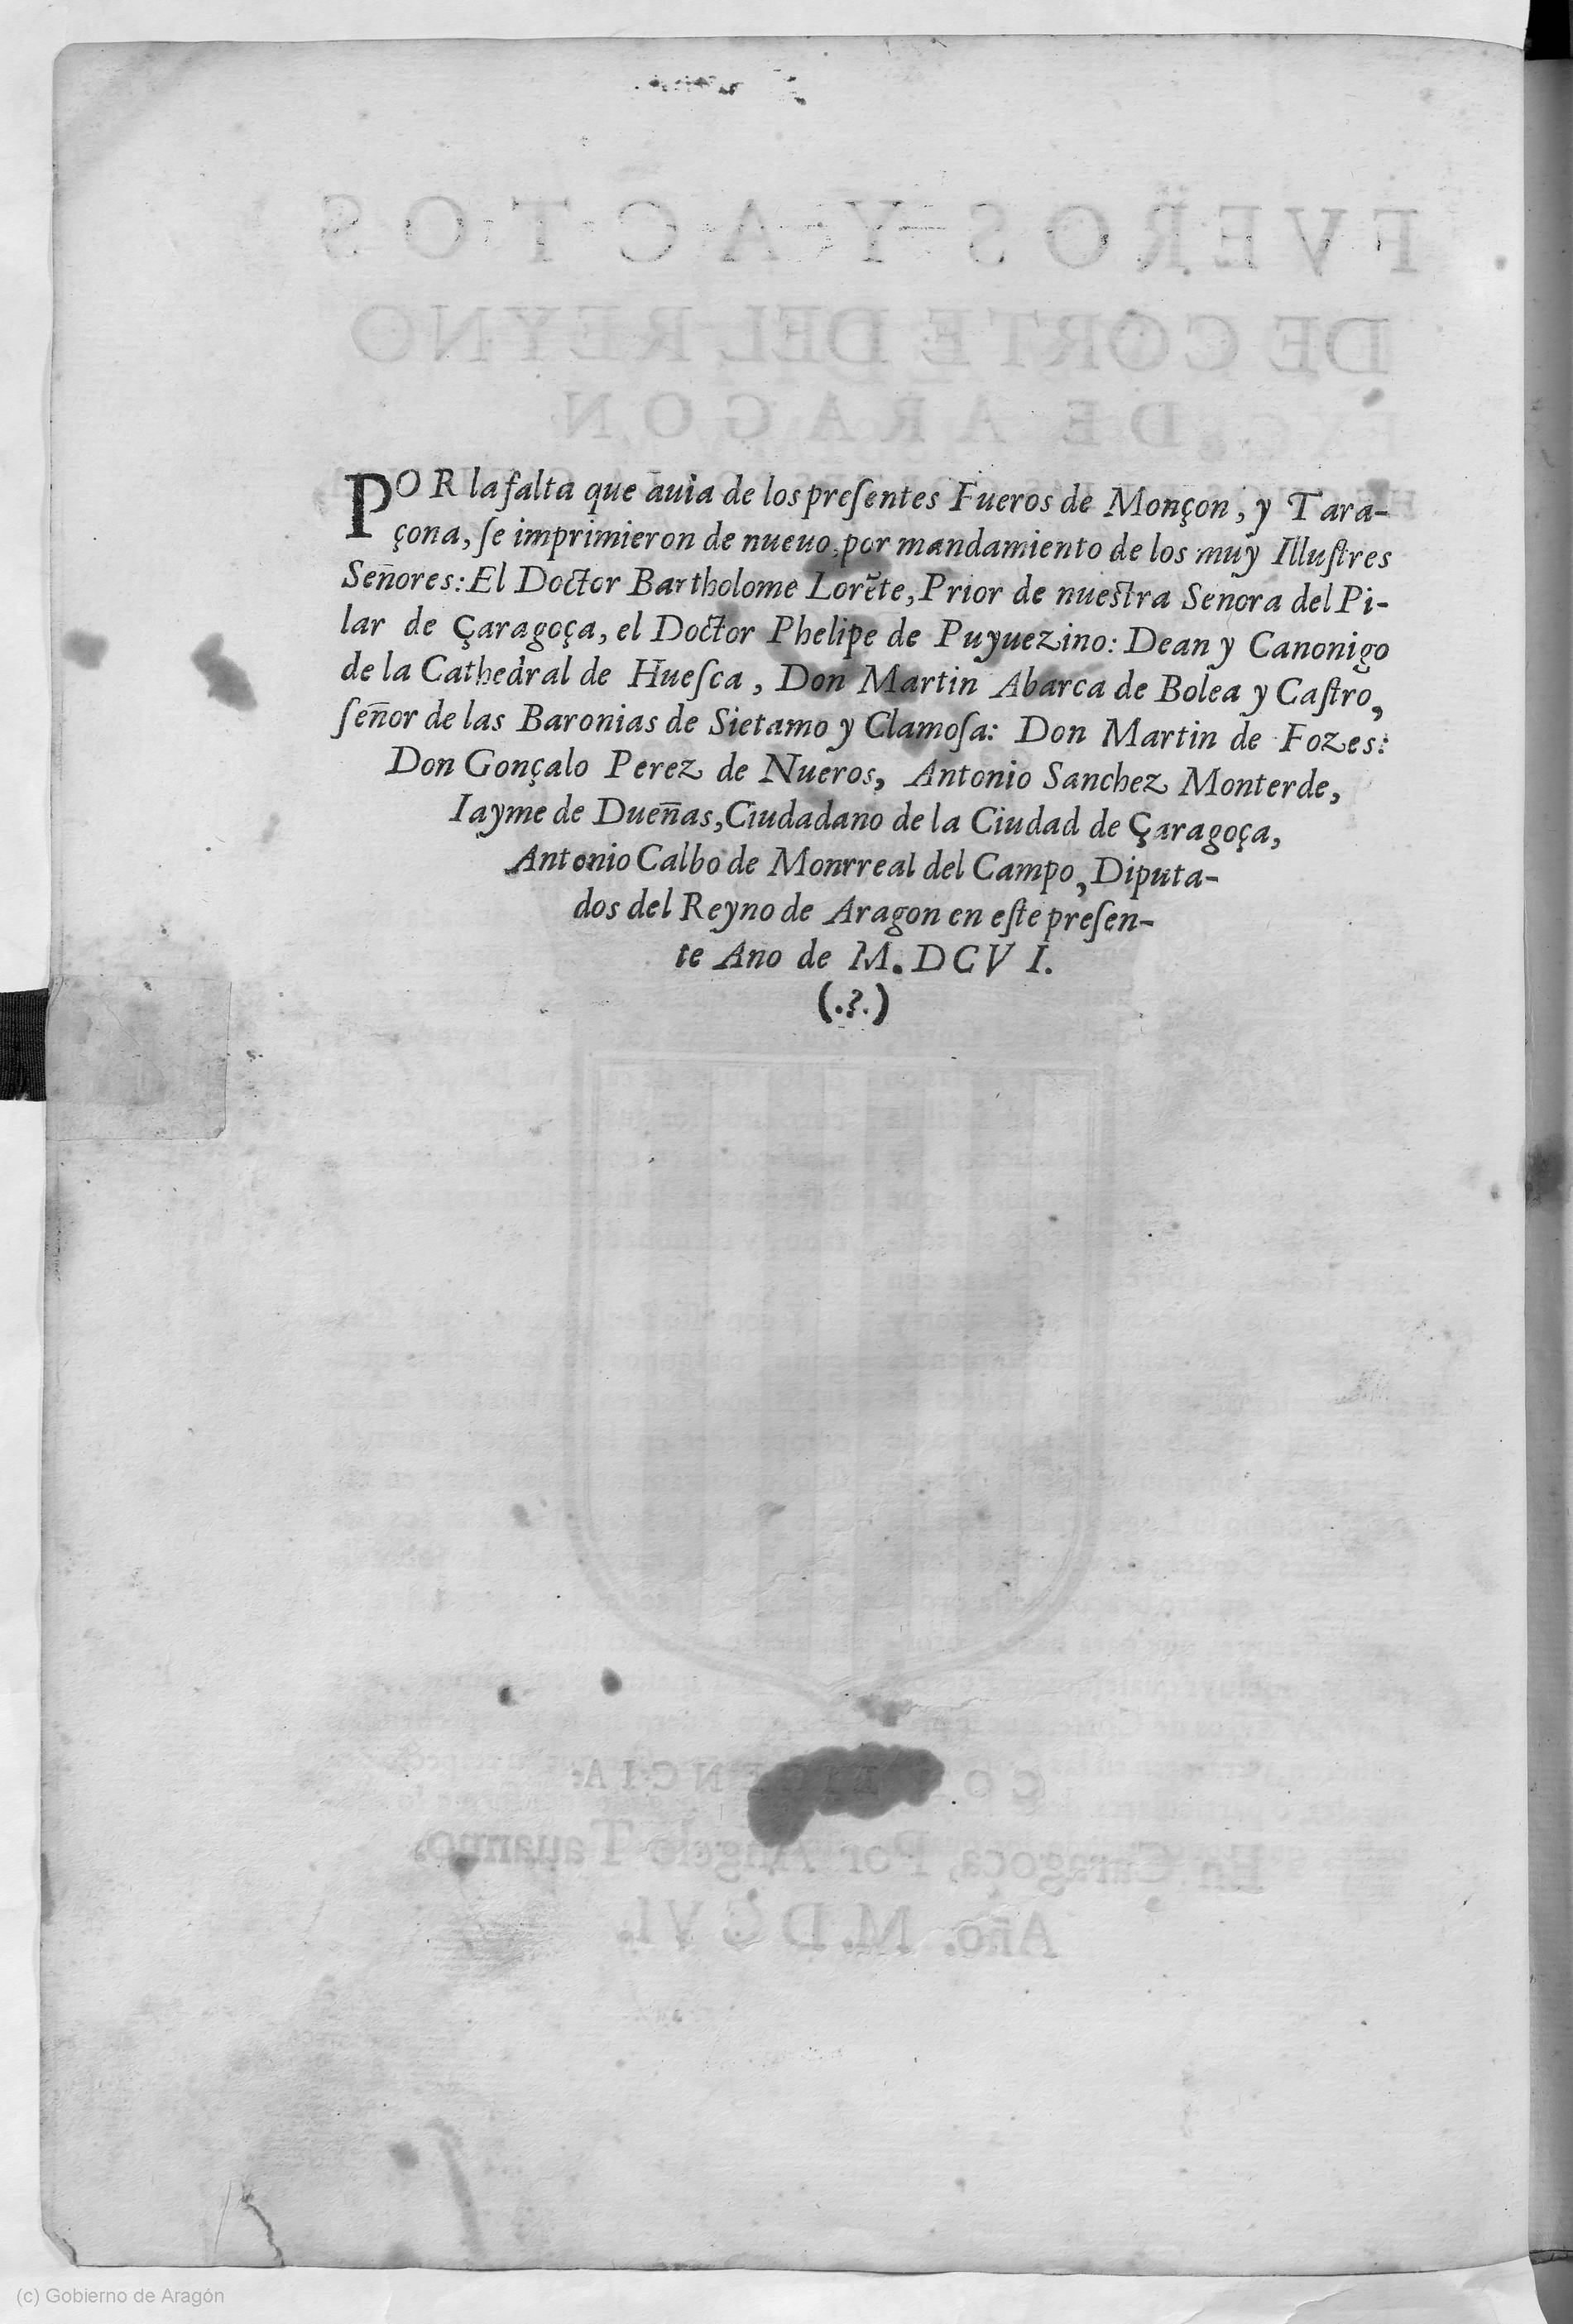 POR la falta que auia de los preſentes Fueros de Monçon, y Tara-
çona, ſe imprimieron de nueuo por mandamiento de los muy Illuſtres
Señores: El Doctor Bartholome Lorẽte, Prior de nueſtra Senora del Pi-
lar de Çaragoça, el Doctor Phelipe de Puyuezino: Dean y Canonigo
de la Cathedral de Hueſca, Don Martin Abarca de Bolea y Caſtro,
ſeñor de las Baronias de Sietamo y Clamoſa: Don Martin de Fozes:
Don Gonçalo Perez de Nueros, Antonio Sanchez Monterde,
Iayme de Dueñas, Ciudadano de la Ciudad de Çaragoça,
Antonio Calbo de Monrreal del Campo, Diputa-
dos del Reyno de Aragon en eſte preſen-
te Ano de M. DCVI.
(.?.)
(c) Gobierno de Aragón